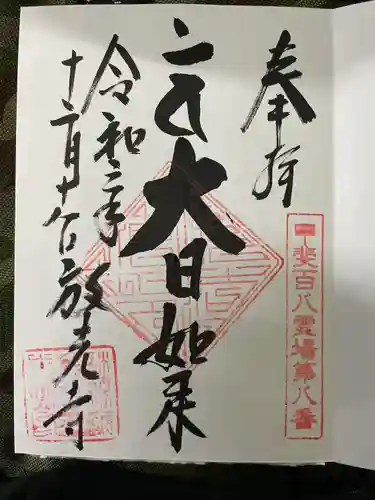 奉拝
甲斐百八霊場第八番
大日如来
令和二年
十二月十六日放光寺